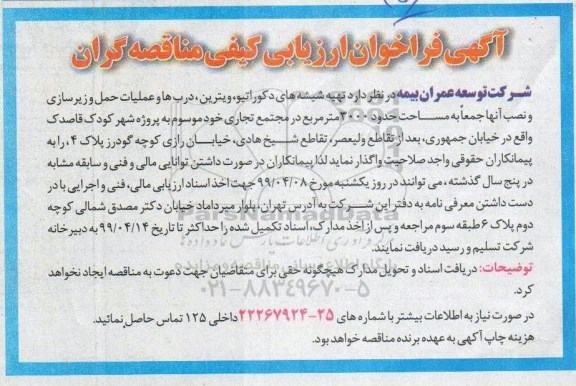 آگهی فراخوان ارزیابی کیفی مناقصه گران
شرکت توسعه عمران بیمه در نظر دارد تهیه شیشه های دکوراتیو، ویترین، درب ها و عملیات حمل و زیرسازی
و نصب آنها جمعاً به مساحت حدود ۳۰۰۰ مترمربع در مجتمع تجاری خود موسوم به پروژه شهر کودک قاصدک
واقع در خیابان جمهوری، بعد از تقاطع ولیعصر، تقاطع شیخ هادی، خیابان رازی کوچه گودرز پلاک ۴، را به
پیمانکاران حقوقی واجد صلاحیت واگذار نماید لذا پیمانکاران در صورت داشتن توانایی مالی و فنی و سابقه مشابه
در پنج سال گذشته، می توانند در روز یکشنبه مورخ ۹۹/۰۴/۰۸ جهت اخذ اسناد ارزیابی مالی، فنی و اجرایی با در
دست داشتن معرفی نامه به دفتر این شرکت به آدرس تهران، بلوار میرداماد خیابان دکتر مصدق شمالی کوچه
دوم پلاک ۶ طبقه سوم مراجعه و پس از اخذ مدارک، اسناد تکمیل شده را حداکثر تا تاریخ ۹۹/۰۴/۱۴ به دبیرخانه
شرکت تسلیم و رسید دریافت نمایند.
توضیحات: دریافت اسناد و تحویل مدارک هیچگونه حقی برای متقاضیان جهت دعوت به مناقصه ایجاد نخواهد
کرد.
۰۲۱-۸۸۳۴۹۶۷۰-۵
در صورت نیاز به اطلاعات بیشتر با شماره های ۲۵-۲۲۲۶۷۹۲۴ داخلی ۱۲۵ تماس حاصل نمائید.
هزینه چاپ آگهی به عهده برنده مناقصه خواهد بود.
ParsNamadData